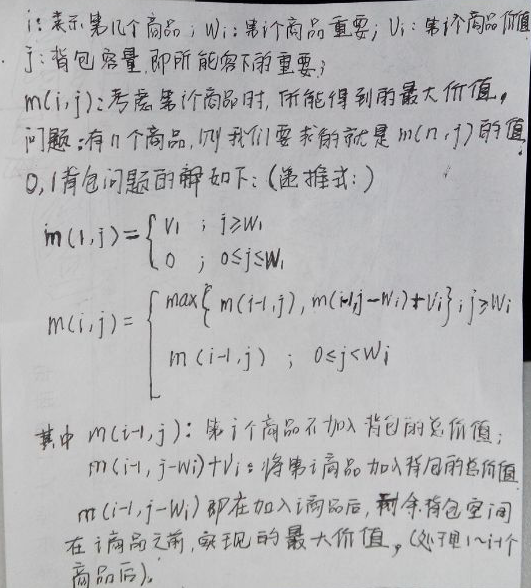 i:表示第几个商品;Wi:第i个商品重要;Vi:第i个商品价值
j:背包容量,即所能容下的重要;
m(i,j):考虑第i个商品时,所能得到的最大价值。
问题:有n个商品,则我们要求的就是m(n,j)的值
0,1背包问题的解如下:(递推式:)
m(1,j)={ V1 ; j≥W1
0 ; 0≤j≤W1
m(i,j)={ max{m(i-1,j),m(i-1,j-Wi)+Vi};j≥Wi
m(i-1,j) ; 0≤j<Wi
其中 m(i-1,j):第i个商品不加入背包的总价值;
m(i-1,j-Wi)+Vi:将第i商品加入背包的总价值
m(i-1,j-Wi)即在加入i商品后,剩余背包空间
在i商品之前,实现的最大价值。(处理1~i-1个
商品后)。